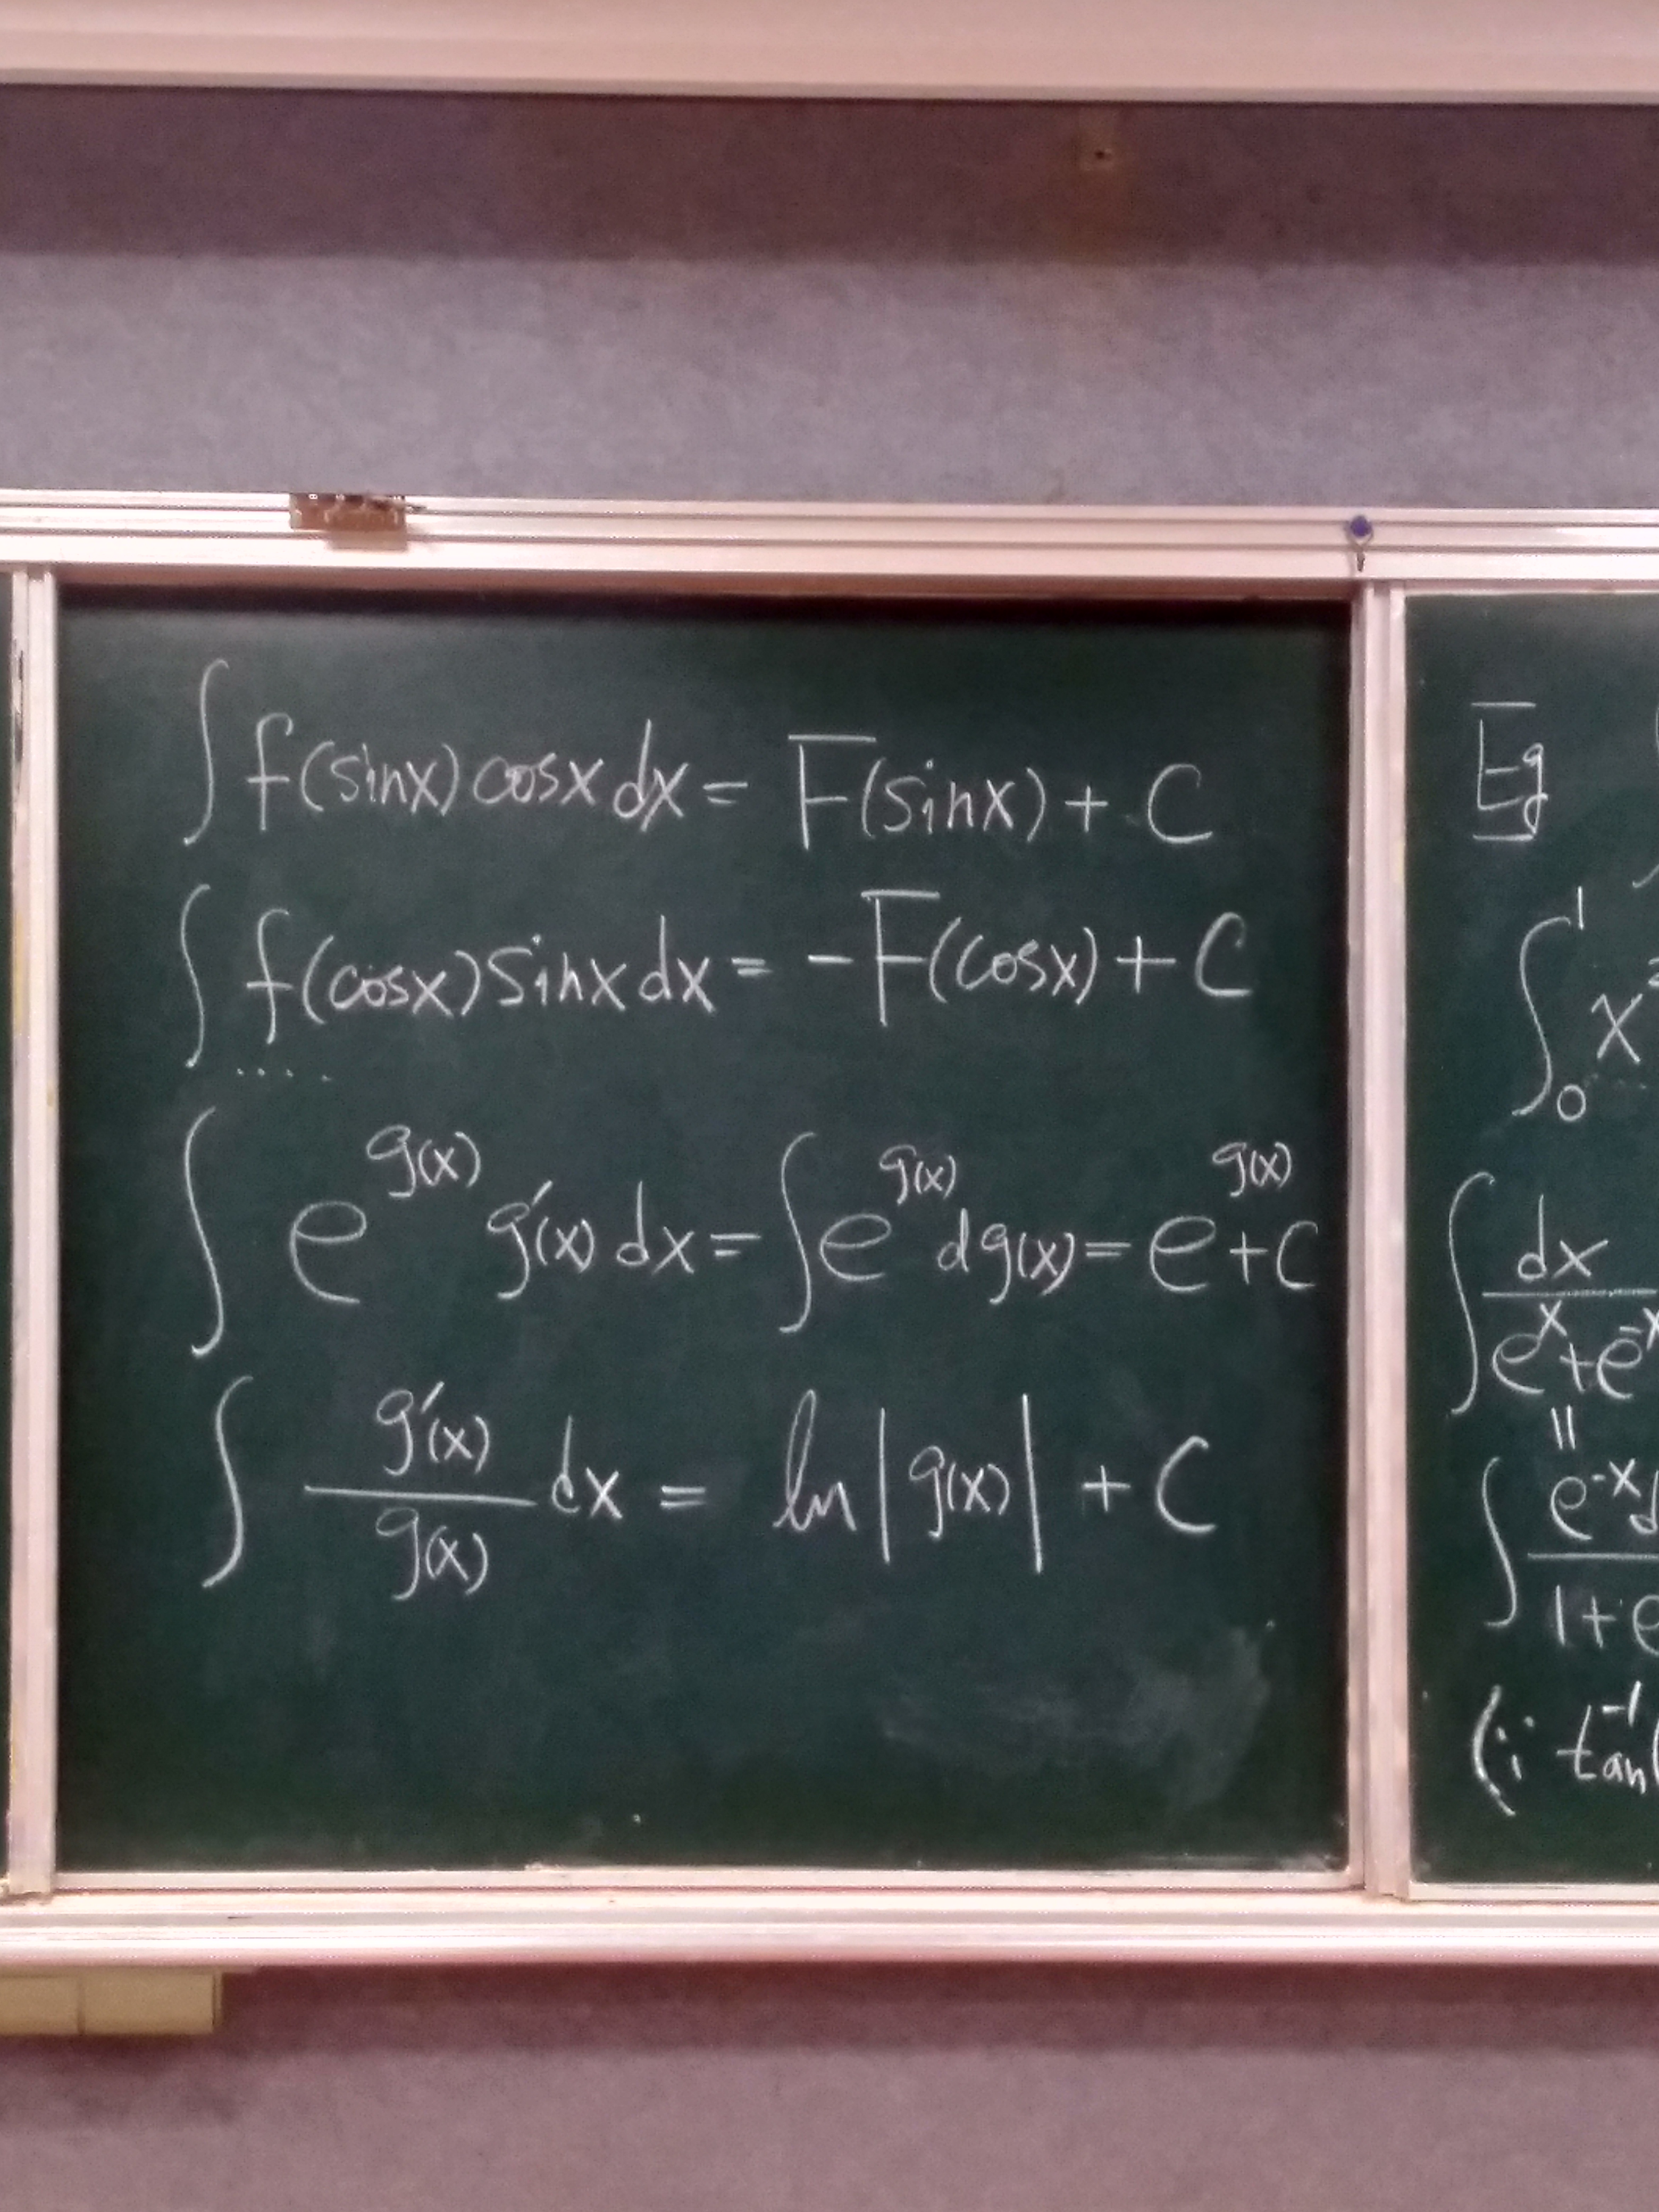 ∫ f(sinx) cosx dx = F(sinx) + C
∫ f(cosx) sinx dx = -F(cosx) + C
.....
∫ e^{g(x)} g'(x) dx = ∫ e^{g(x)} dg(x) = e^{g(x)} + C
∫ \frac{g'(x)}{g(x)} dx = ln|g(x)| + C
Eg
∫_0^1 x
∫ \frac{dx}{e^x + e^{-x}}
||
∫ \frac{e^{-x} d}{1 + e}
(∵ tan^{-1}(